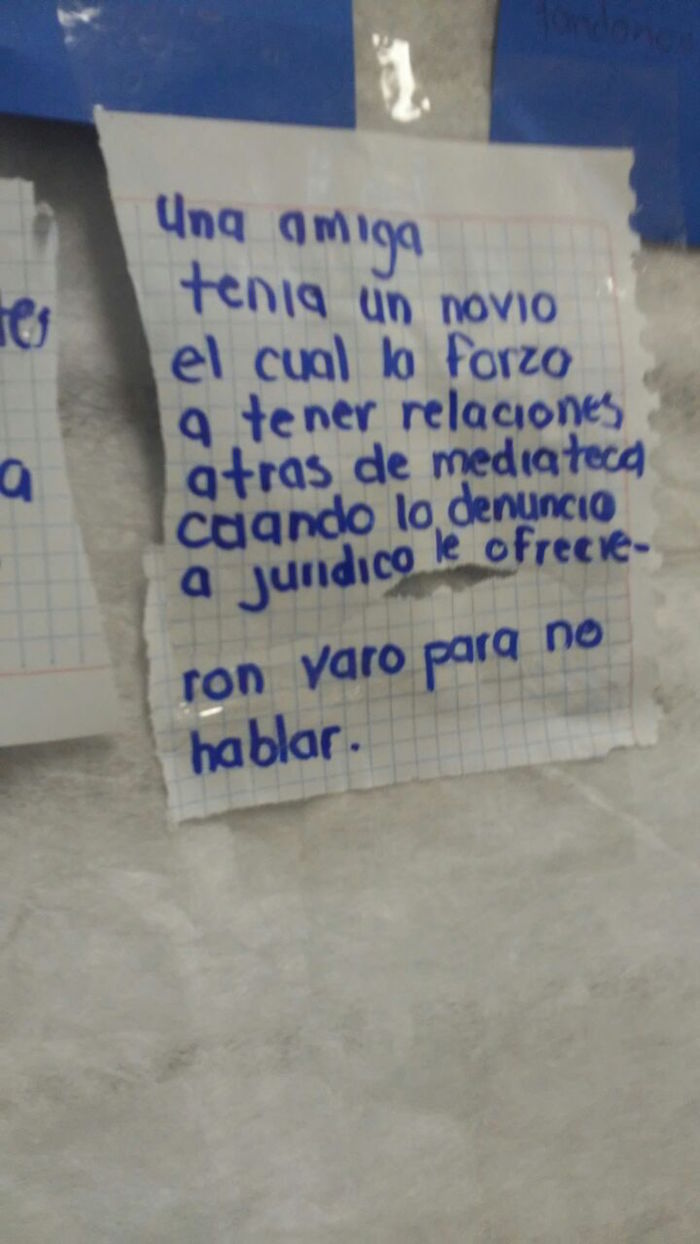 una amiga
tenia un novio
el cual lo forzo
a tener relaciones
atras de mediateca
cuando lo denuncio
a juridico le ofrecie-
ron varo para no
hablar.
tes
a